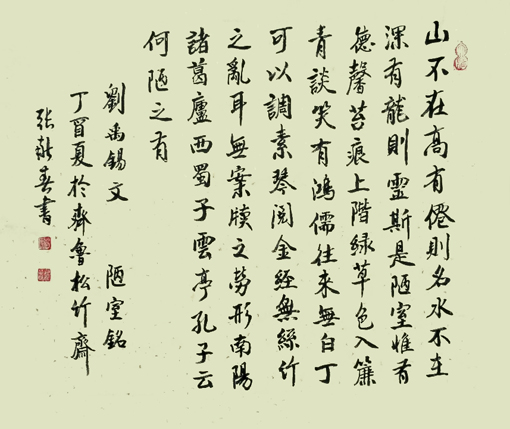 山不在高有僊則名水不在
深有龍則靈斯是陋室惟有
德馨苔痕上階緑草色入簾
青談笑有鴻儒往来無白丁
可以調素琴閲金經無絲竹
之亂耳無案牘之勞形南陽
諸葛廬西蜀子雲亭孔子云
何陋之有
劉禹錫文 陋室銘
丁酉夏於齊魯松竹齋
張春書